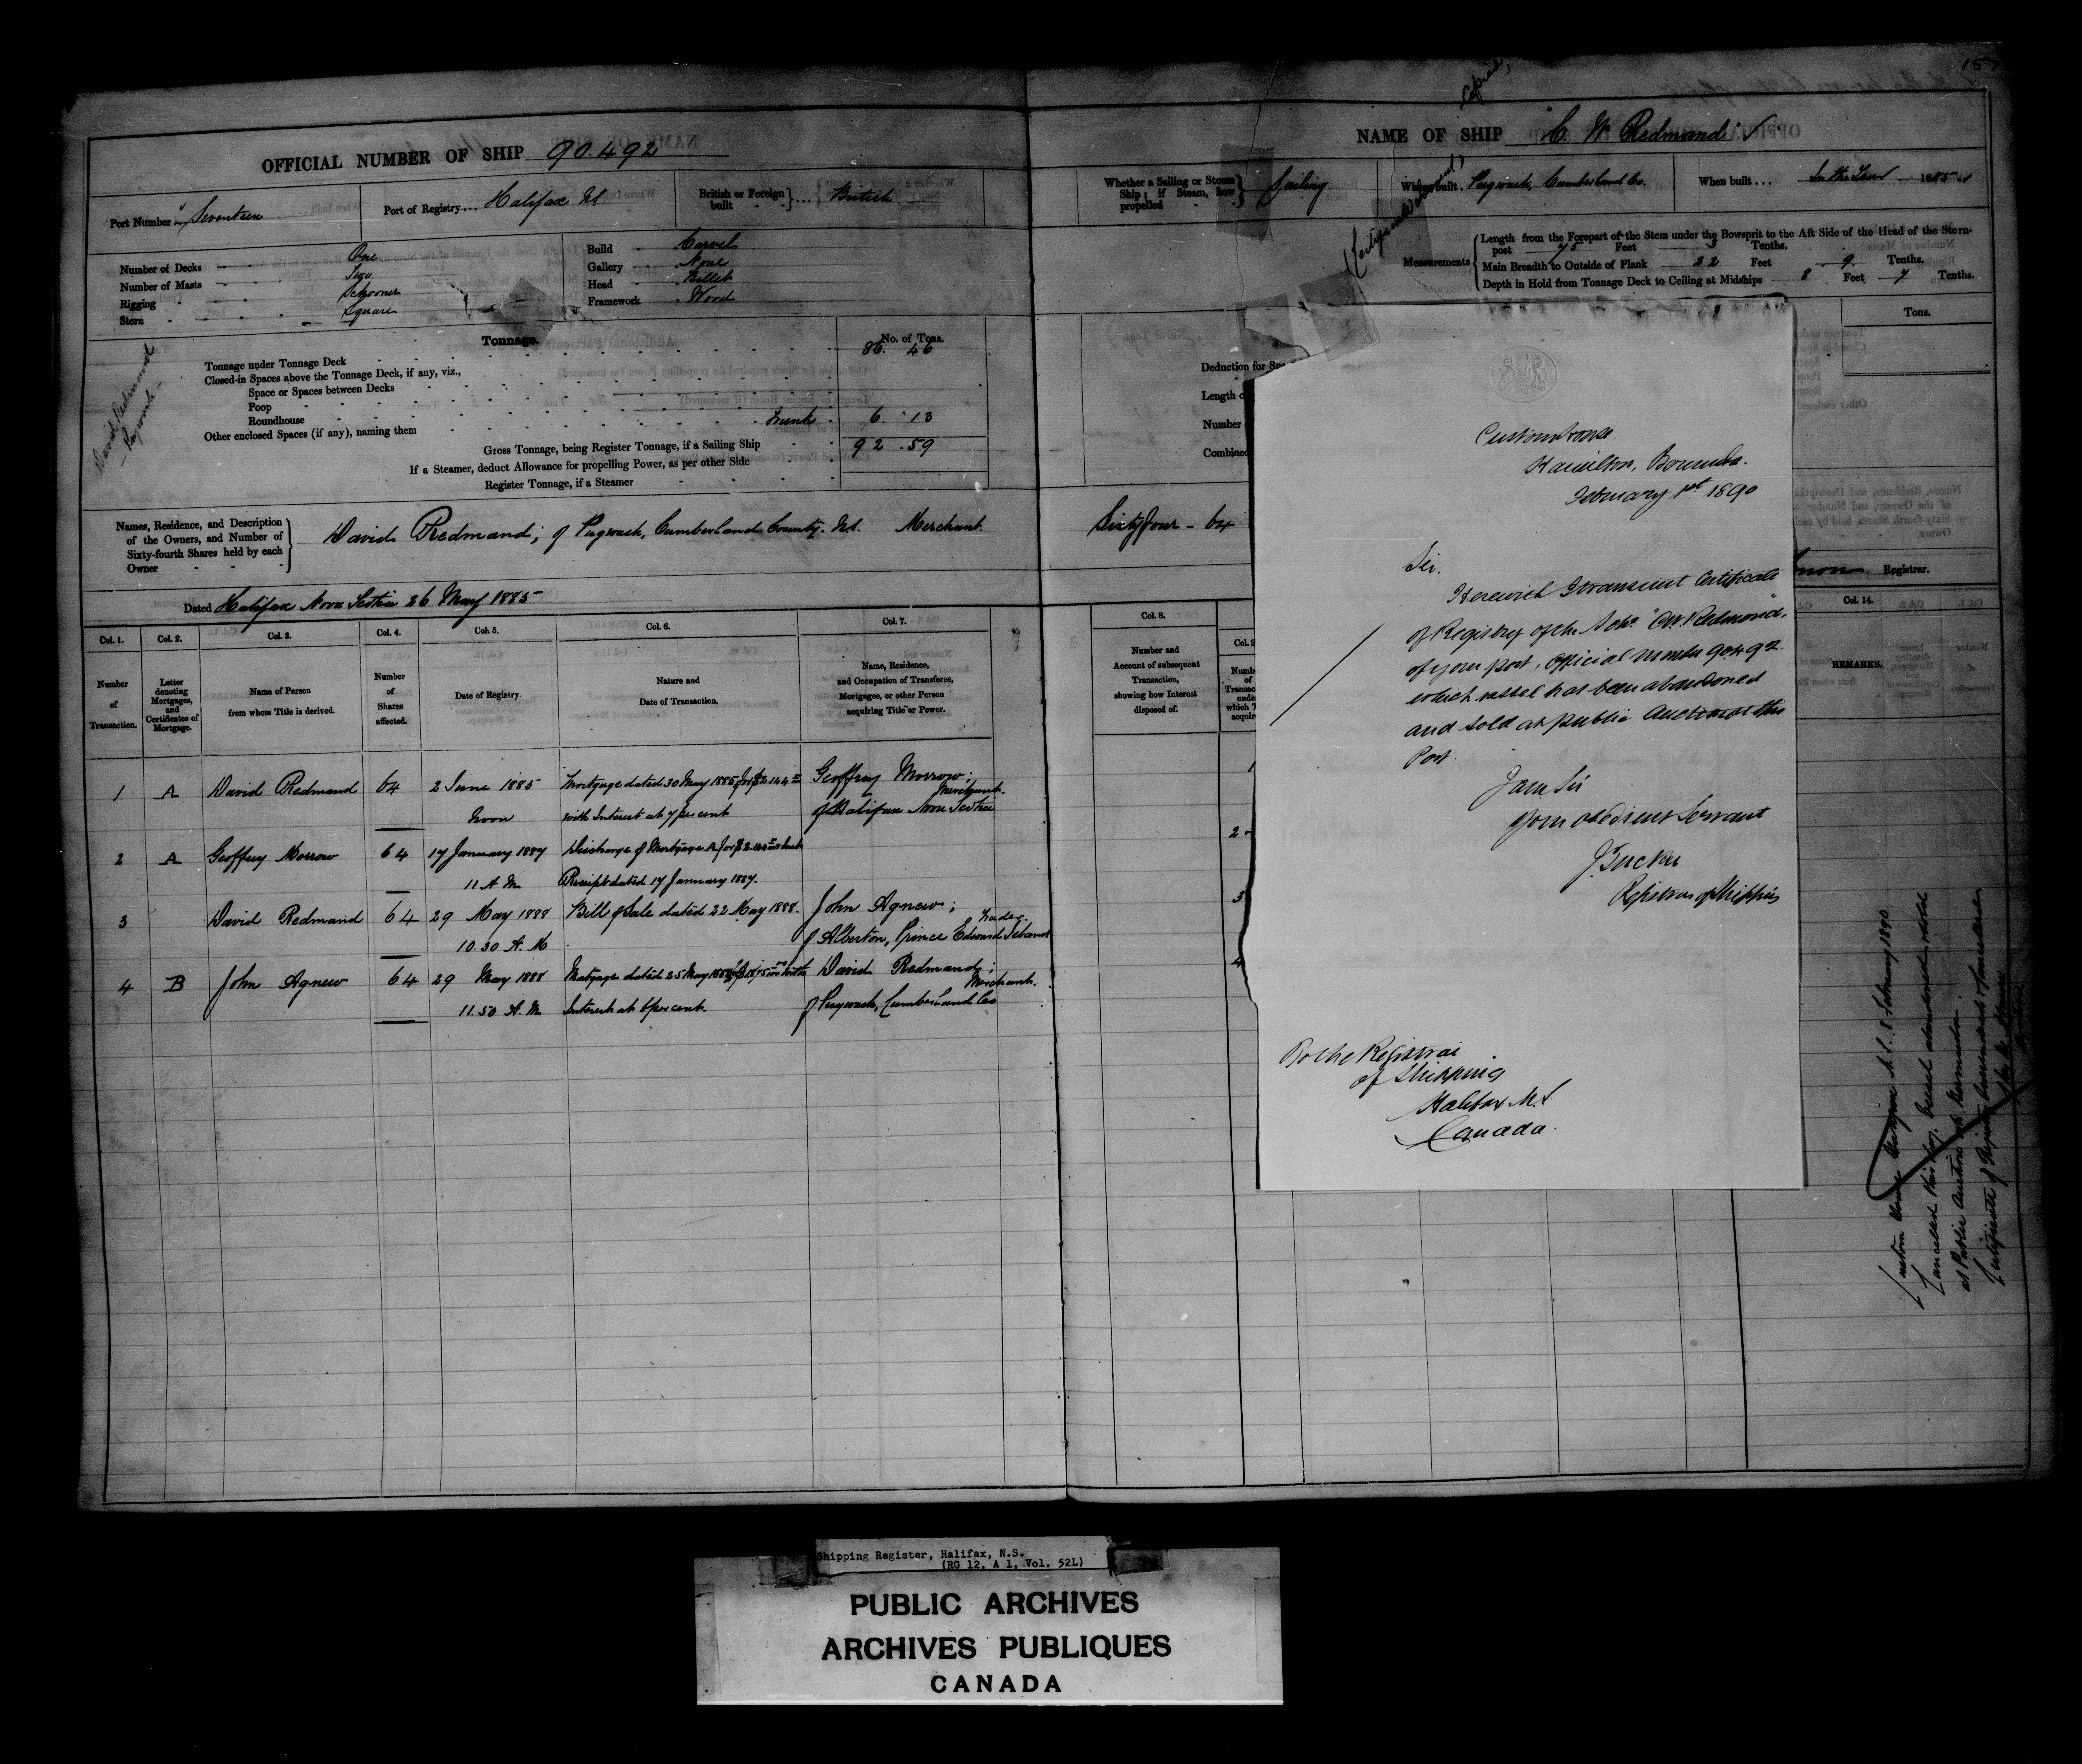 157
OFFICIAL NUMBER OF SHIP 90.492
Port Number in Seventeen
Port of Registry ... Halifax NS
British or Foreign built } ... British
Number of Decks One
Number of Masts Two
Rigging Schooner
Stern Square
Build Carvel
Gallery None
Head Billet
Framework Wood
Tonnage. No. of Tons.
Tonnage under Tonnage Deck 86. 46
Closed-in Spaces above the Tonnage Deck, if any, viz.,
Space or Spaces between Decks
Poop
Roundhouse
Other enclosed Spaces (if any), naming them Trunk 6. 13
Gross Tonnage, being Register Tonnage, if a Sailing Ship 92.59
If a Steamer, deduct Allowance for propelling Power, as per other Side
Register Tonnage, if a Steamer
David Redmond
Pugwash
Names, Residence, and Description
of the Owners, and Number of
Sixty-fourth Shares held by each
Owner
David Redmand; of Pugwash, Cumberland County. NS. Merchant.
Dated Halifax Nova Scotia 26 May 1885
Col. 1. Col. 2. Col. 3. Col. 4. Col. 5. Col. 6. Col. 7.
Number of Transaction.
Letter denoting Mortgages, and Certificates of Mortgage.
Name of Person from whom Title is derived.
Number of Shares affected.
Date of Registry.
Nature and Date of Transaction.
Name, Residence, and Occupation of Transferee, Mortgagee, or other Person acquiring Title or Power.
1 A David Redmand 64 2 June 1885 Mortgage dated 30 May 1885 for Geoffrey Morrow;
Noon with Interest at 7 per cent Merchant. of Halifax Nova Scotia
2 A Geoffrey Morrow 64 17 January 1887 Discharge of Mortgage A for
11 A M Receipt dated 17 January 1887.
3 David Redmand 64 29 May 1888 Bill of Sale dated 22 May 1888. John Agnew;
10.30 A. M Trader. of Alberton, Prince Edward Island
4 B John Agnew 64 29 May 1888 Mortgage dated 25 May 1888 for with David Redmand;
11.50 A. M Interest at 6 per cent. Merchant. of Pugwash, Cumberland Co
NAME OF SHIP C. W. Redmand
Copied,
Whether a Sailing or Steam Ship; if Steam, how propelled } Sailing
Where built. Pugwash, Cumberland Co.
When built ... In the Year 1885
Measurements
Length from the Forepart of the Stem under the Bowsprit to the Aft Side of the Head of the Stern-
post 75 Feet 3 Tenths.
Main Breadth to Outside of Plank 22 Feet 9 Tenths.
Depth in Hold from Tonnage Deck to Ceiling at Midships 8 Feet 7 Tenths.
Tons.
Deduction for
Length o
Number
Combined
Sixty four - 64
Registrar.
Col. 8.
Number and Account of subsequent Transaction, showing how Interest disposed of.
Col. 9
Col. 14.
REMARKS.
1
2
3
4
Custom House.
Hamilton, Bermuda.
February 1st 1890
Sir.
Herewith I transmit Certificate
of Registry of the Schr. "C.W. Redmond",
of your port, Official number 90.492
which vessel has been abandoned
and sold at public Auction at this
Port.
I am Sir
Your obedient Servant
J. Tucker
Registrar of Shipping
To the Registrar
of Shipping
Halifax N.S
Canada.
Custom House N.S. February 1890
Cancelled this day. Vessel abandoned & sold
at Public Auction at Bermuda.
Certificate of Registry &amp; cancelled
Shipping Register, Halifax, N.S.
(RG 12, A 1, Vol. 52L)
PUBLIC ARCHIVES
ARCHIVES PUBLIQUES
CANADA